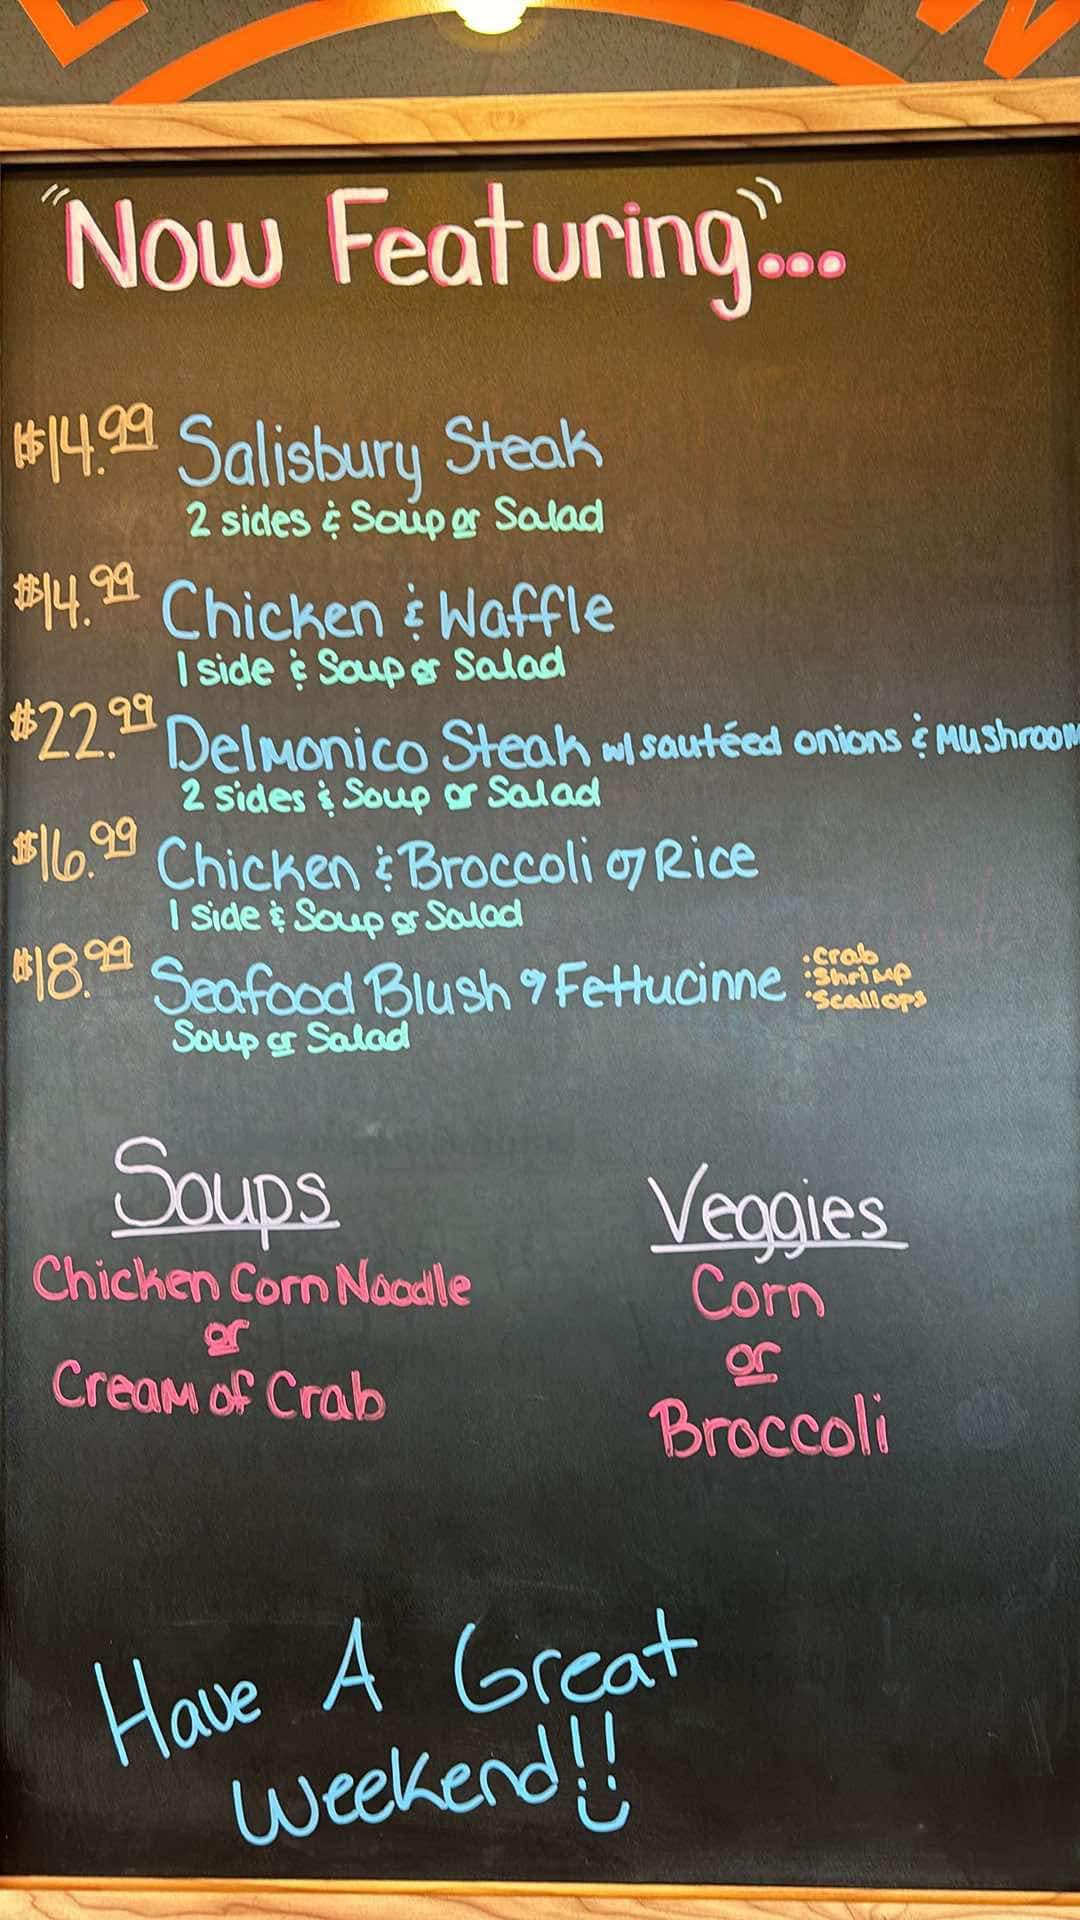 "Now Featuring"...
$14.99 Salisbury Steak
2 sides & Soup or Salad
$14.99 Chicken & Waffle
1 side & Soup or Salad
$22.99 Delmonico Steak w/ sautéed onions & Mushroom
2 sides & Soup or Salad
$16.99 Chicken & Broccoli o/ Rice
1 side & Soup or Salad
$18.99 Seafood Blush Fettucinne
• Crab
• Shrimp
• Scallops
Soup or Salad
Soups
Chicken Corn Noodle
or
Cream of Crab
Veggies
Corn
or
Broccoli
Have A Great
Weekend!!